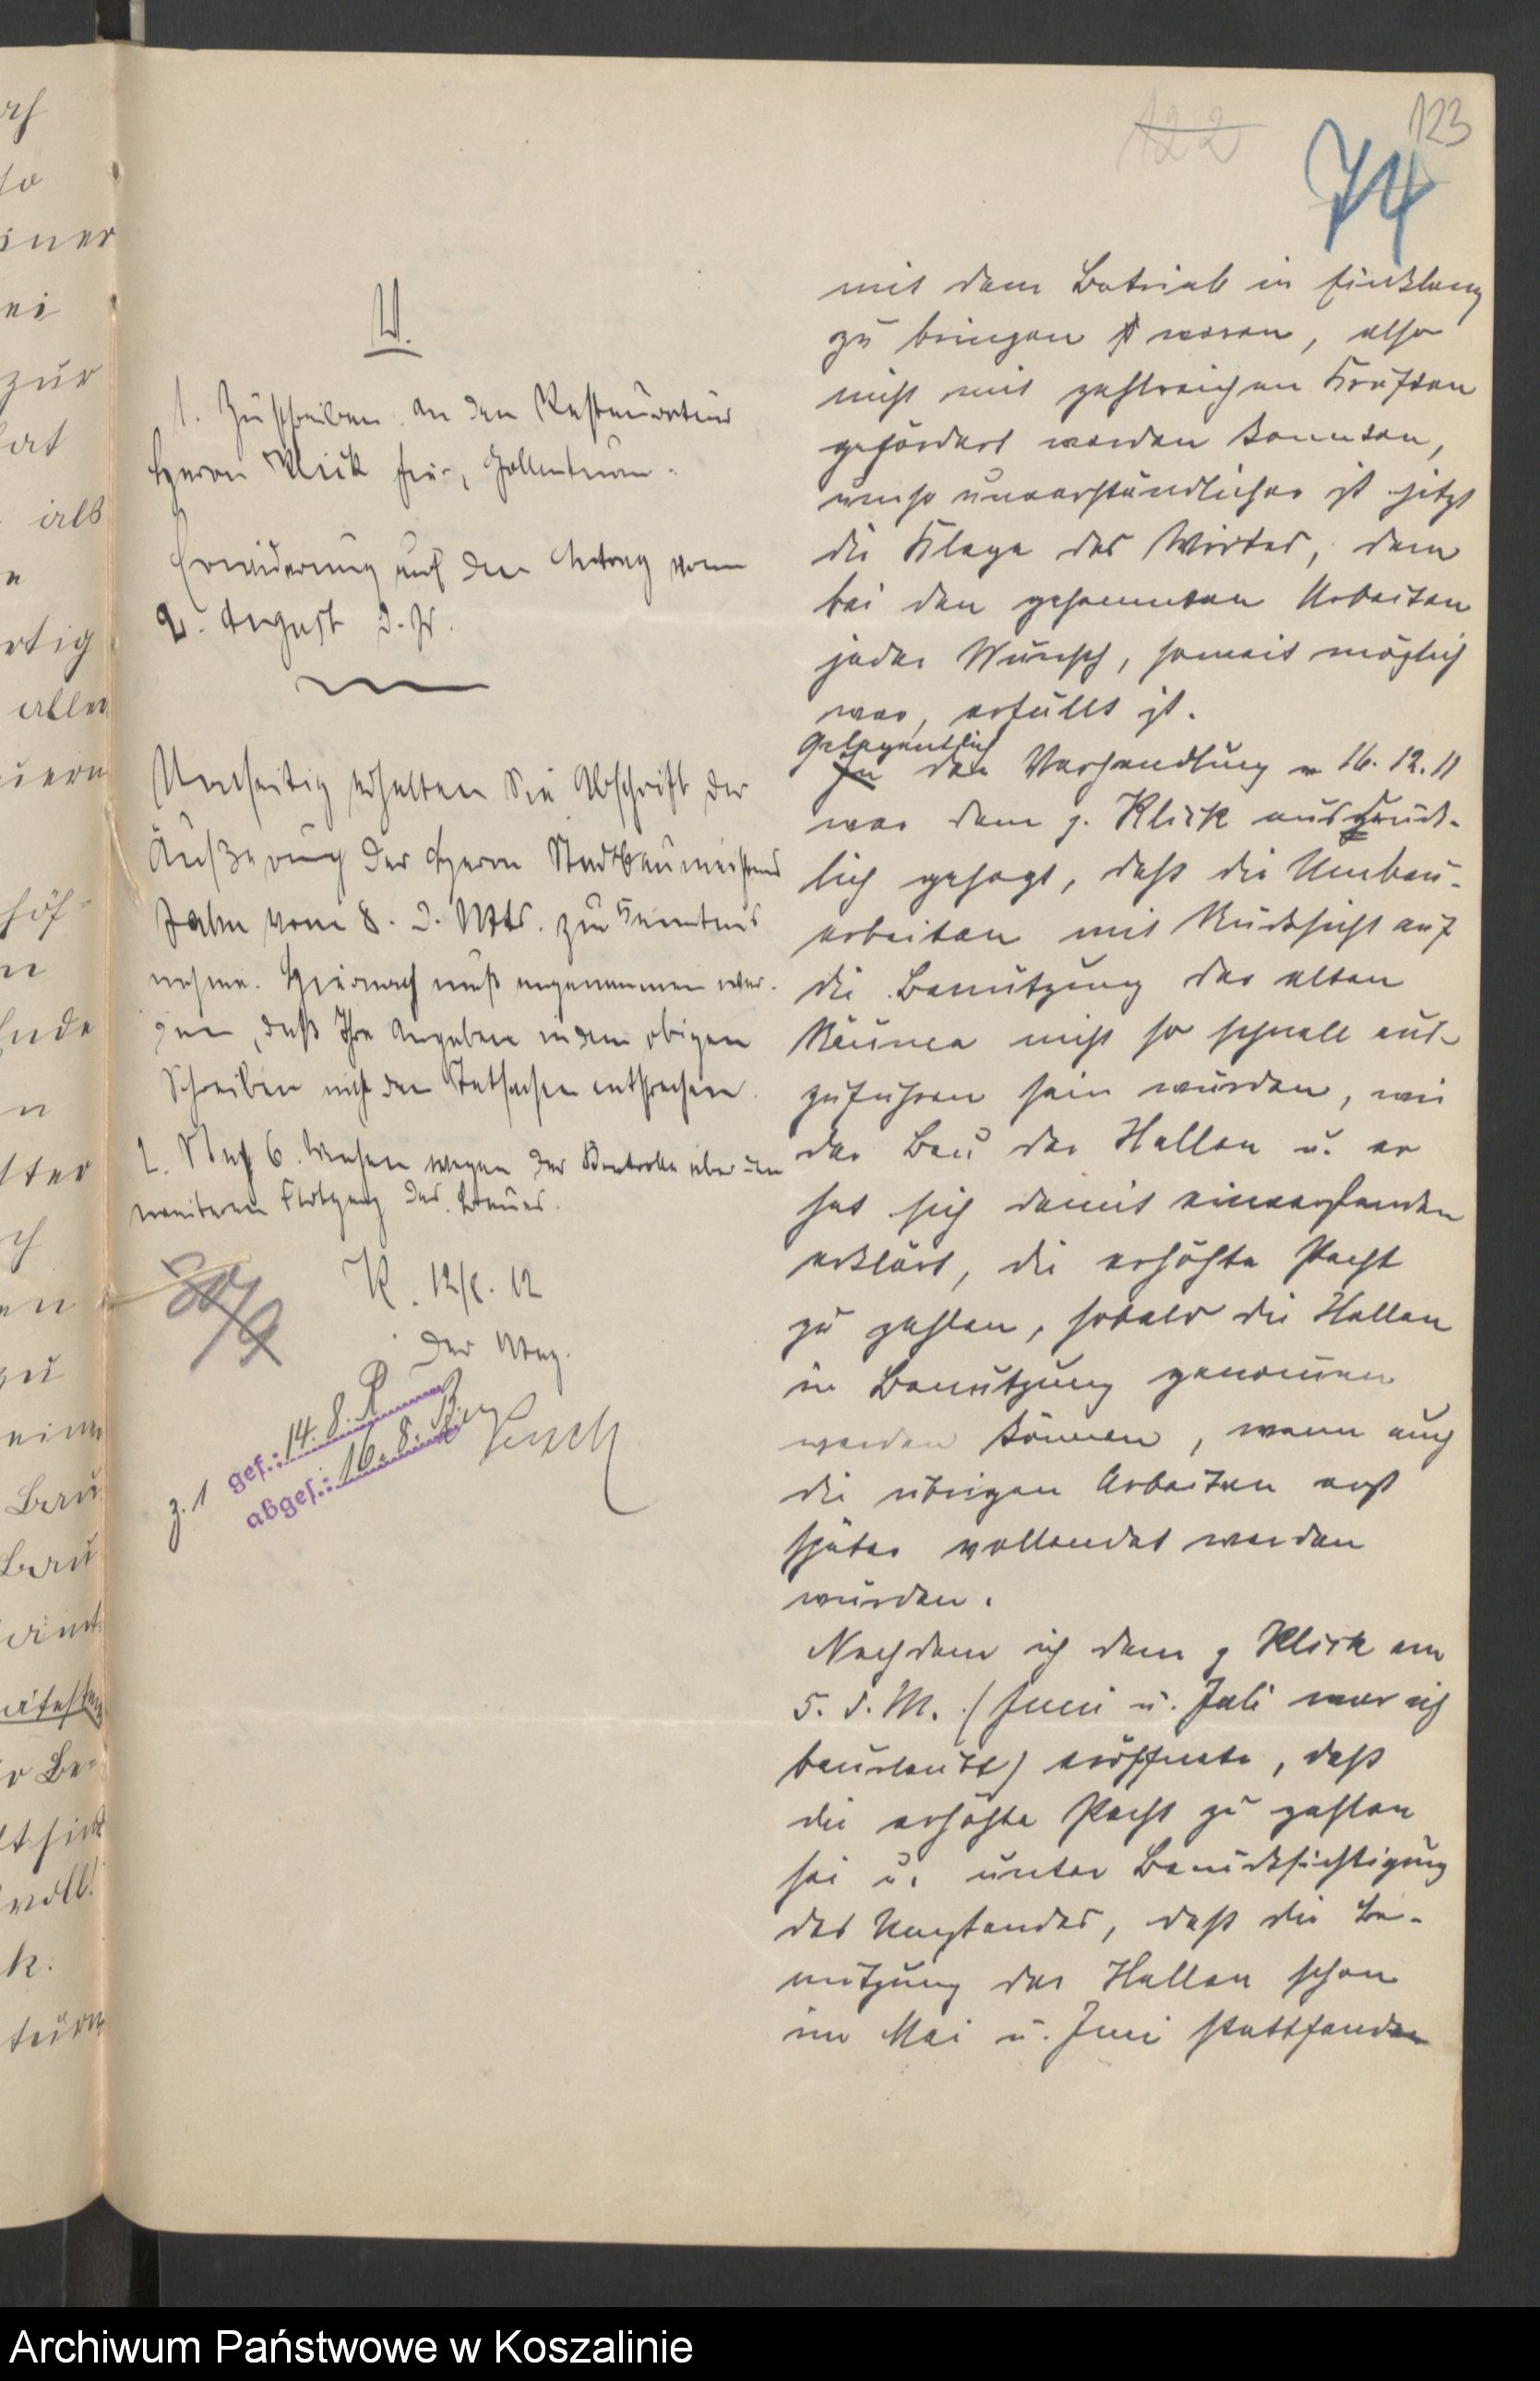 122
123
74
U.
1. Zu schreiben: an den Restaurateur
Herrn Klick hier, Gollenturm.
Erwiderung auf den Antrag vom
2. August d. Js.
Umseitig erhalten Sie Abschrift der
Äußerung des Herrn Stadtbaumeisters
Jahn vom 8. d. Mts. zur Kenntnis
nahme. Hiernach muß angenommen wer-
den, daß Ihre Angaben in dem obigen
Schreiben nicht den Tatsachen entsprechen.
2. Nach 6 Wochen wegen der Kontrolle über den
weiteren Fortgang des Baues.
30/9
K. 12/8. 12
Der Mag.
z. 1 gef.: 14. 8.
abges.: 16. 8.
mit dem Betrieb in Einklang
zu bringen waren, also
nicht mit zahlreichen Kräften
gefördert werden konnten,
umso unverständlicher ist jetzt
die Klage des Wirtes, dem
bei den gesammten Arbeiten
jeder Wunsch, soweit möglich
war, erfüllt ist.
Gelegentlich
In der Verhandlung v. 16. 12. 11
war dem p. Klick ausdrück-
lich gesagt, daß die Umbau-
arbeiten mit Rücksicht auf
die Benutzung der alten
Räume nicht so schnell aus-
zuführen sein würden, wie
der Bau der Hallen u. er
hat sich damit einverstanden
erklärt, die erhöhte Pacht
zu zahlen, sobald die Hallen
in Benutzung genommen
werden können, wenn auch
die übrigen Arbeiten erst
später vollendet werden
würden.
Nachdem ich dem p Klick am
5. d. M. (Juni u. Juli war ich
beurlaubt) eröffnete, daß
die erhöhte Pacht zu zahlen
sei u. unter Berücksichtigung
des Umstandes, daß die Be-
nutzung der Hallen schon
im Mai u. Juni stattfanden
Archiwum Państwowe w Koszalinie